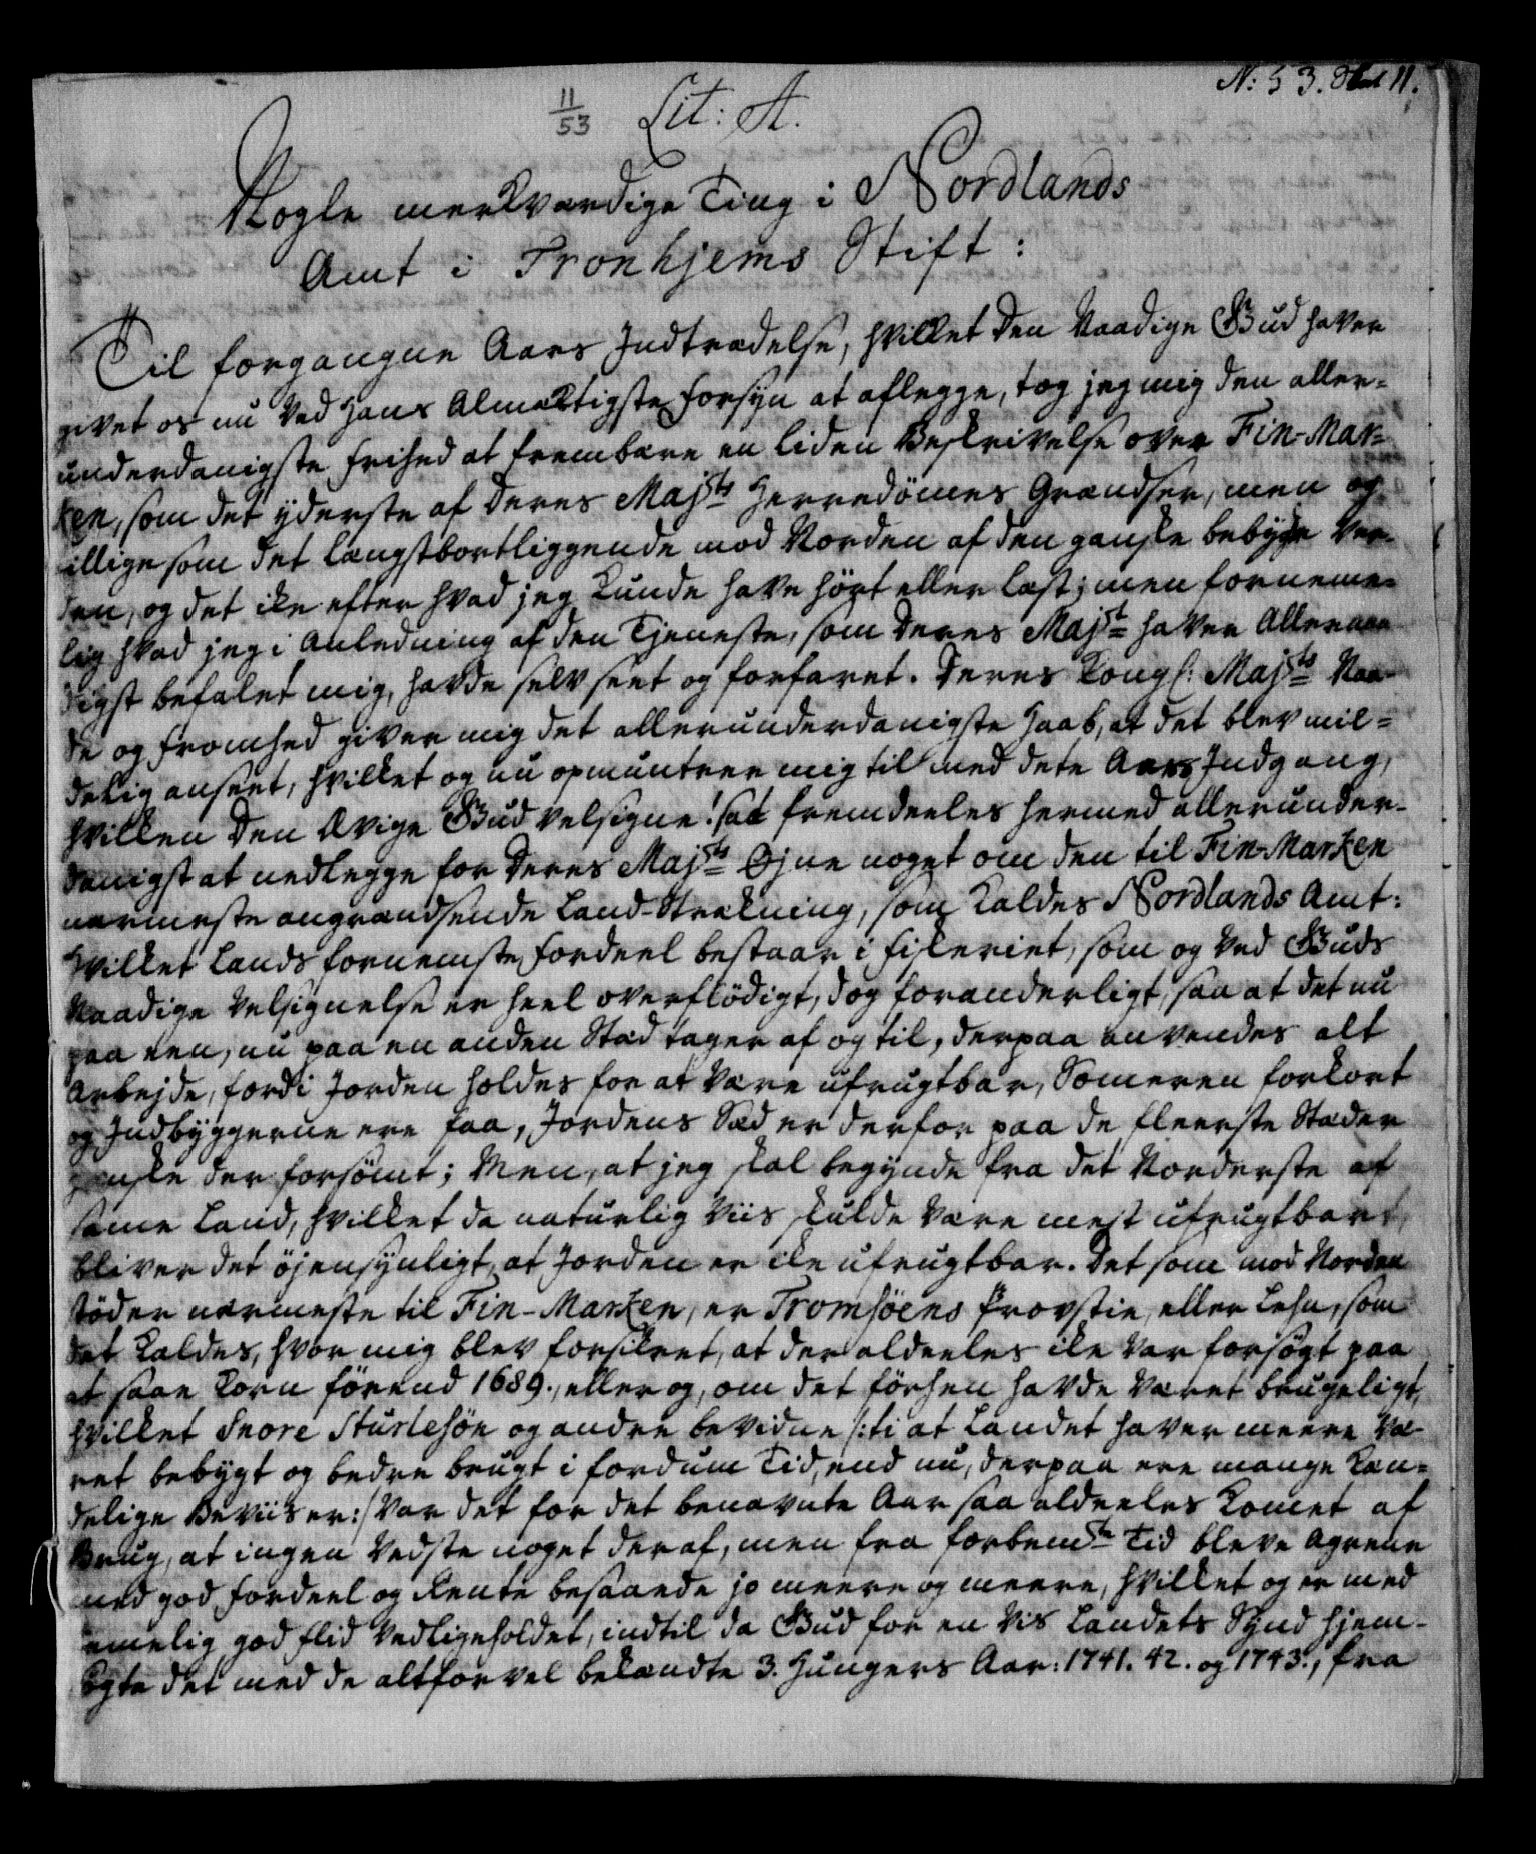 N: 53. 11.
11/53 Lit: A.
Nogle merkværdige Ting i Nordlands
Amt i Tronhjems Stift:
Til forgangne Aars Indtrædelse, hvilket den Naadige Gud haver
givet os nu ved Hans Almægtigste Forsyn at aflegge, tog jeg mig den aller-
underdanigste Frihed at frembære en liden Beskrivelse over Fin-Mar-
ken, som det yderste af Deres Majsts Herredömes Grændser, men og
tillige som det længstbortliggende mod Norden af den ganske bebygte Ver-
den, og det ike efter hvad jeg kunde have hört eller læst; men forneme-
lig hvad jeg i Anledning af den Tjeneste, som Deres Majst haver Allernaa-
digst befalet mig, havde selv seet og forfaret. Deres Kongl: Majsts Naa-
de og Fromhed giver mig det allerunderdanigste Haab, at det blev mil-
delig anseet, hvilket og nu opmuntrer mig til med dete Aars Indgang,
hvilken den Ævige Gud velsigne! saa fremdeeles hermed allerunder-
danigst at nedlegge for Deres Majsts Öjne noget om den til Fin-Marken
nærmeste angrændsende Land-Strækning, som kaldes Nordlands Amt:
Hvilket Lands fornemste Fordeel bestaar i Fiskeriet, som og ved Guds
Naadige Velsignelse er heel overflödigt, dog foranderligt, saa at det nu
paa een, nu paa en anden Stæd tager af og til, derpaa anvendes alt
Arbejde, fordi Jorden holdes for at være ufrugtbar, Someren for kort
og Indbyggerne ere faa, Jordens Sæd er derfor paa de fleerste Stæder
ganske der forsömt; Men, at jeg skal begynde fra det Norderste af
same Land, hvilket da naturlig viis skulde være mest ufrugtbart,
bliver det öjensynligt, at Jorden er ike ufrugtbar. Det som mod Norden
stöder nærmeste til Fin-Marken, er Tromsöens Provstie, eller Lehn, som
det kaldes, hvor mig blev forsikret, at der aldeeles ike var forsögt paa
at saae Korn förend 1689., eller og, om det förhen havde været brugeligt,
hvilket Snore Sturlesön og andre bevidne /: ti at Landet haver meere væ-
ret bebygt og bedre brugt i fordum Tid, end nu, derpaa ere mange Kien-
delige Beviiser:/ var det for det benævnte Aar saa aldeeles komet af
Brug, at ingen vedste noget deraf, men fra forbemte Tid bleve Agrene
med god Fordeel og Rente besaaede jo meere og meere, hvilket og er med
temelig god Flid vedligeholdet, indtil da Gud for en vis Landets Synd hjem-
sögte det med de altforvel bekiendte 3. Hungers Aar: 1741. 42. og 1743., fra